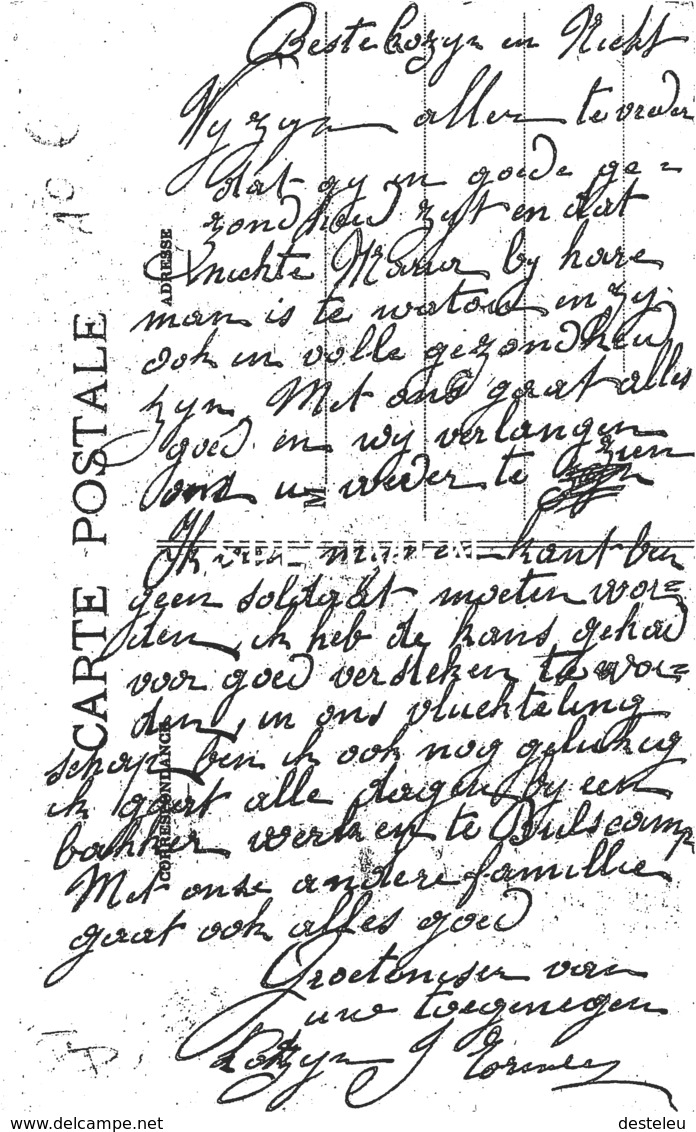 Beste kozyn en Nicht
Wy zyn allen tevreden
dat gy in goede ge=
zondheid zyt en dat
nichte Maria by hare
man is te watou en zy
ook in volle gezondheid
zyn. Met ons gaat alles
goed en wy verlangen
ons u weder te zien
Ik van mynen kant ben
geen soldaat moeten wor=
den, ik heb de kans gehad
voor goed versteken te wor=
den, in ons vluchteling
schap ben ik ook nog gelukkig
ik gaat alle dagen by een
bakker werken te Bulscamp
Met onze andere famillie
gaat ook alles goed
Groetenissen van
uw toegenegen
Kozyn J
CARTE POSTALE
ADRESSE
CORRESPONDANCE
M
www.delcampe.net
desteleu